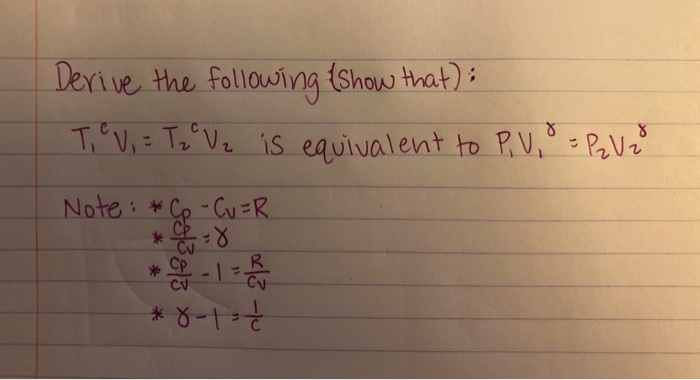 Derive the following (show that):
T₁ᶜV₁ = T₂ᶜV₂ is equivalent to P₁V₁^γ = P₂V₂^γ
Note: * Cp - Cv = R
* Cp/Cv = γ
* Cp/Cv - 1 = R/Cv
* γ - 1 = 1/c